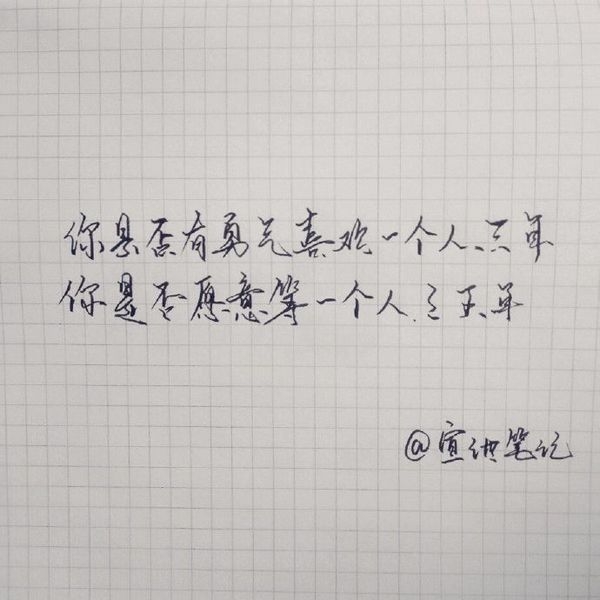 你是否有勇气喜欢一个人三年
你是否愿意等一个人三五年